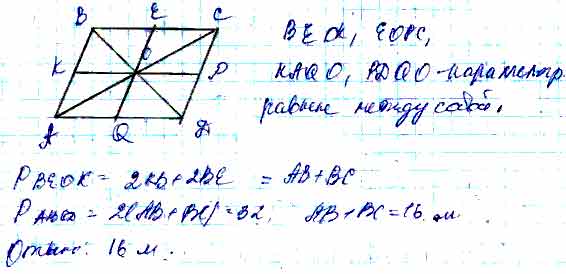 B E C
K O P
A Q D
BEOK, EOPC,
KAQO, PDQO - параллелогр.
равные между собой.
P BEOK = 2KB + 2BE = AB + BC
P ABCD = 2(AB + BC) = 32, AB + BC = 16 м
Ответ: 16 м.